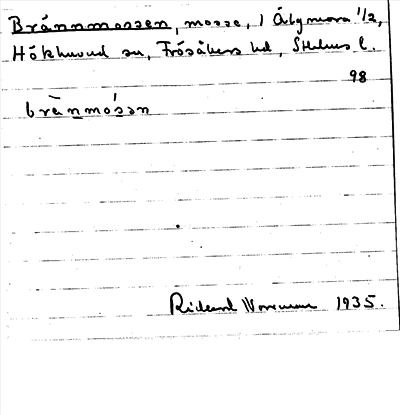 Brännmossen, mosse, i Älgmora 1/2,
Hökhuvud sn, Frösåkers hd, Sthlms l.
98
brä̀nmós̥ən
Rickard 1935.